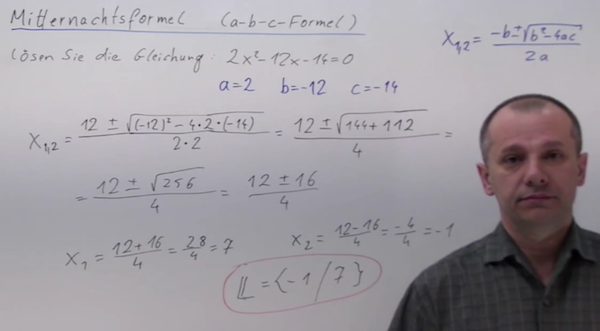 Mitternachtsformel (a-b-c-Formel)
x₁,₂ = (-b ± √(b² - 4ac)) / 2a
Lösen Sie die Gleichung: 2x² - 12x - 14 = 0
a = 2 b = -12 c = -14
x₁,₂ = (12 ± √((-12)² - 4·2·(-14))) / (2·2) = (12 ± √(144 + 112)) / 4 =
= (12 ± √256) / 4 = (12 ± 16) / 4
x₁ = (12 + 16) / 4 = 28/4 = 7 x₂ = (12 - 16) / 4 = -4/4 = -1
𝕃 = {-1 / 7}